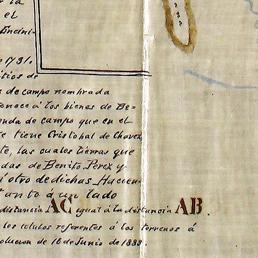 la
el
Encini-
1781.
itios de
s de campo nombrada
onoce á los bienes de Be-
nda de campo que en el
e tiene Cristobal de Chavez
te, las cuales tierras que
das de Benito Perez y
i otro de dichas Hacien-
tanto á un lado
distancia AC igual á la distancia AB.
los titulos referentes á los terrenos á
olucion de 16 de Junio de 1888.